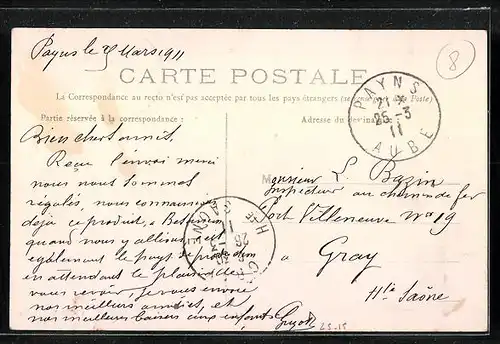 Payns le 25 Mars 1911
8
CARTE POSTALE
La Correspondance au recto n'est pas acceptée par tous les pays étrangers (se à la Poste)
Partie réservée à la correspondance :
Adresse du destinataire
PAYNS
21
25 -3
11
AUBE
Bien cher
Reçu l'envoi merci
nous nous sommes
régalés, nous connaissons
déjà ce produit, à Besançon
quand nous y allions, est
également le pays de
en attendant le plaisir de
vous revoir, je vous envoie
nos meilleurs amitiés, et
nos meilleurs baisers aux enfants
Monsieur L. Bazin
Inspecteur au chemin de fer
Port Villeneuve No 19
à Gray
Hte Saône
26
25-15